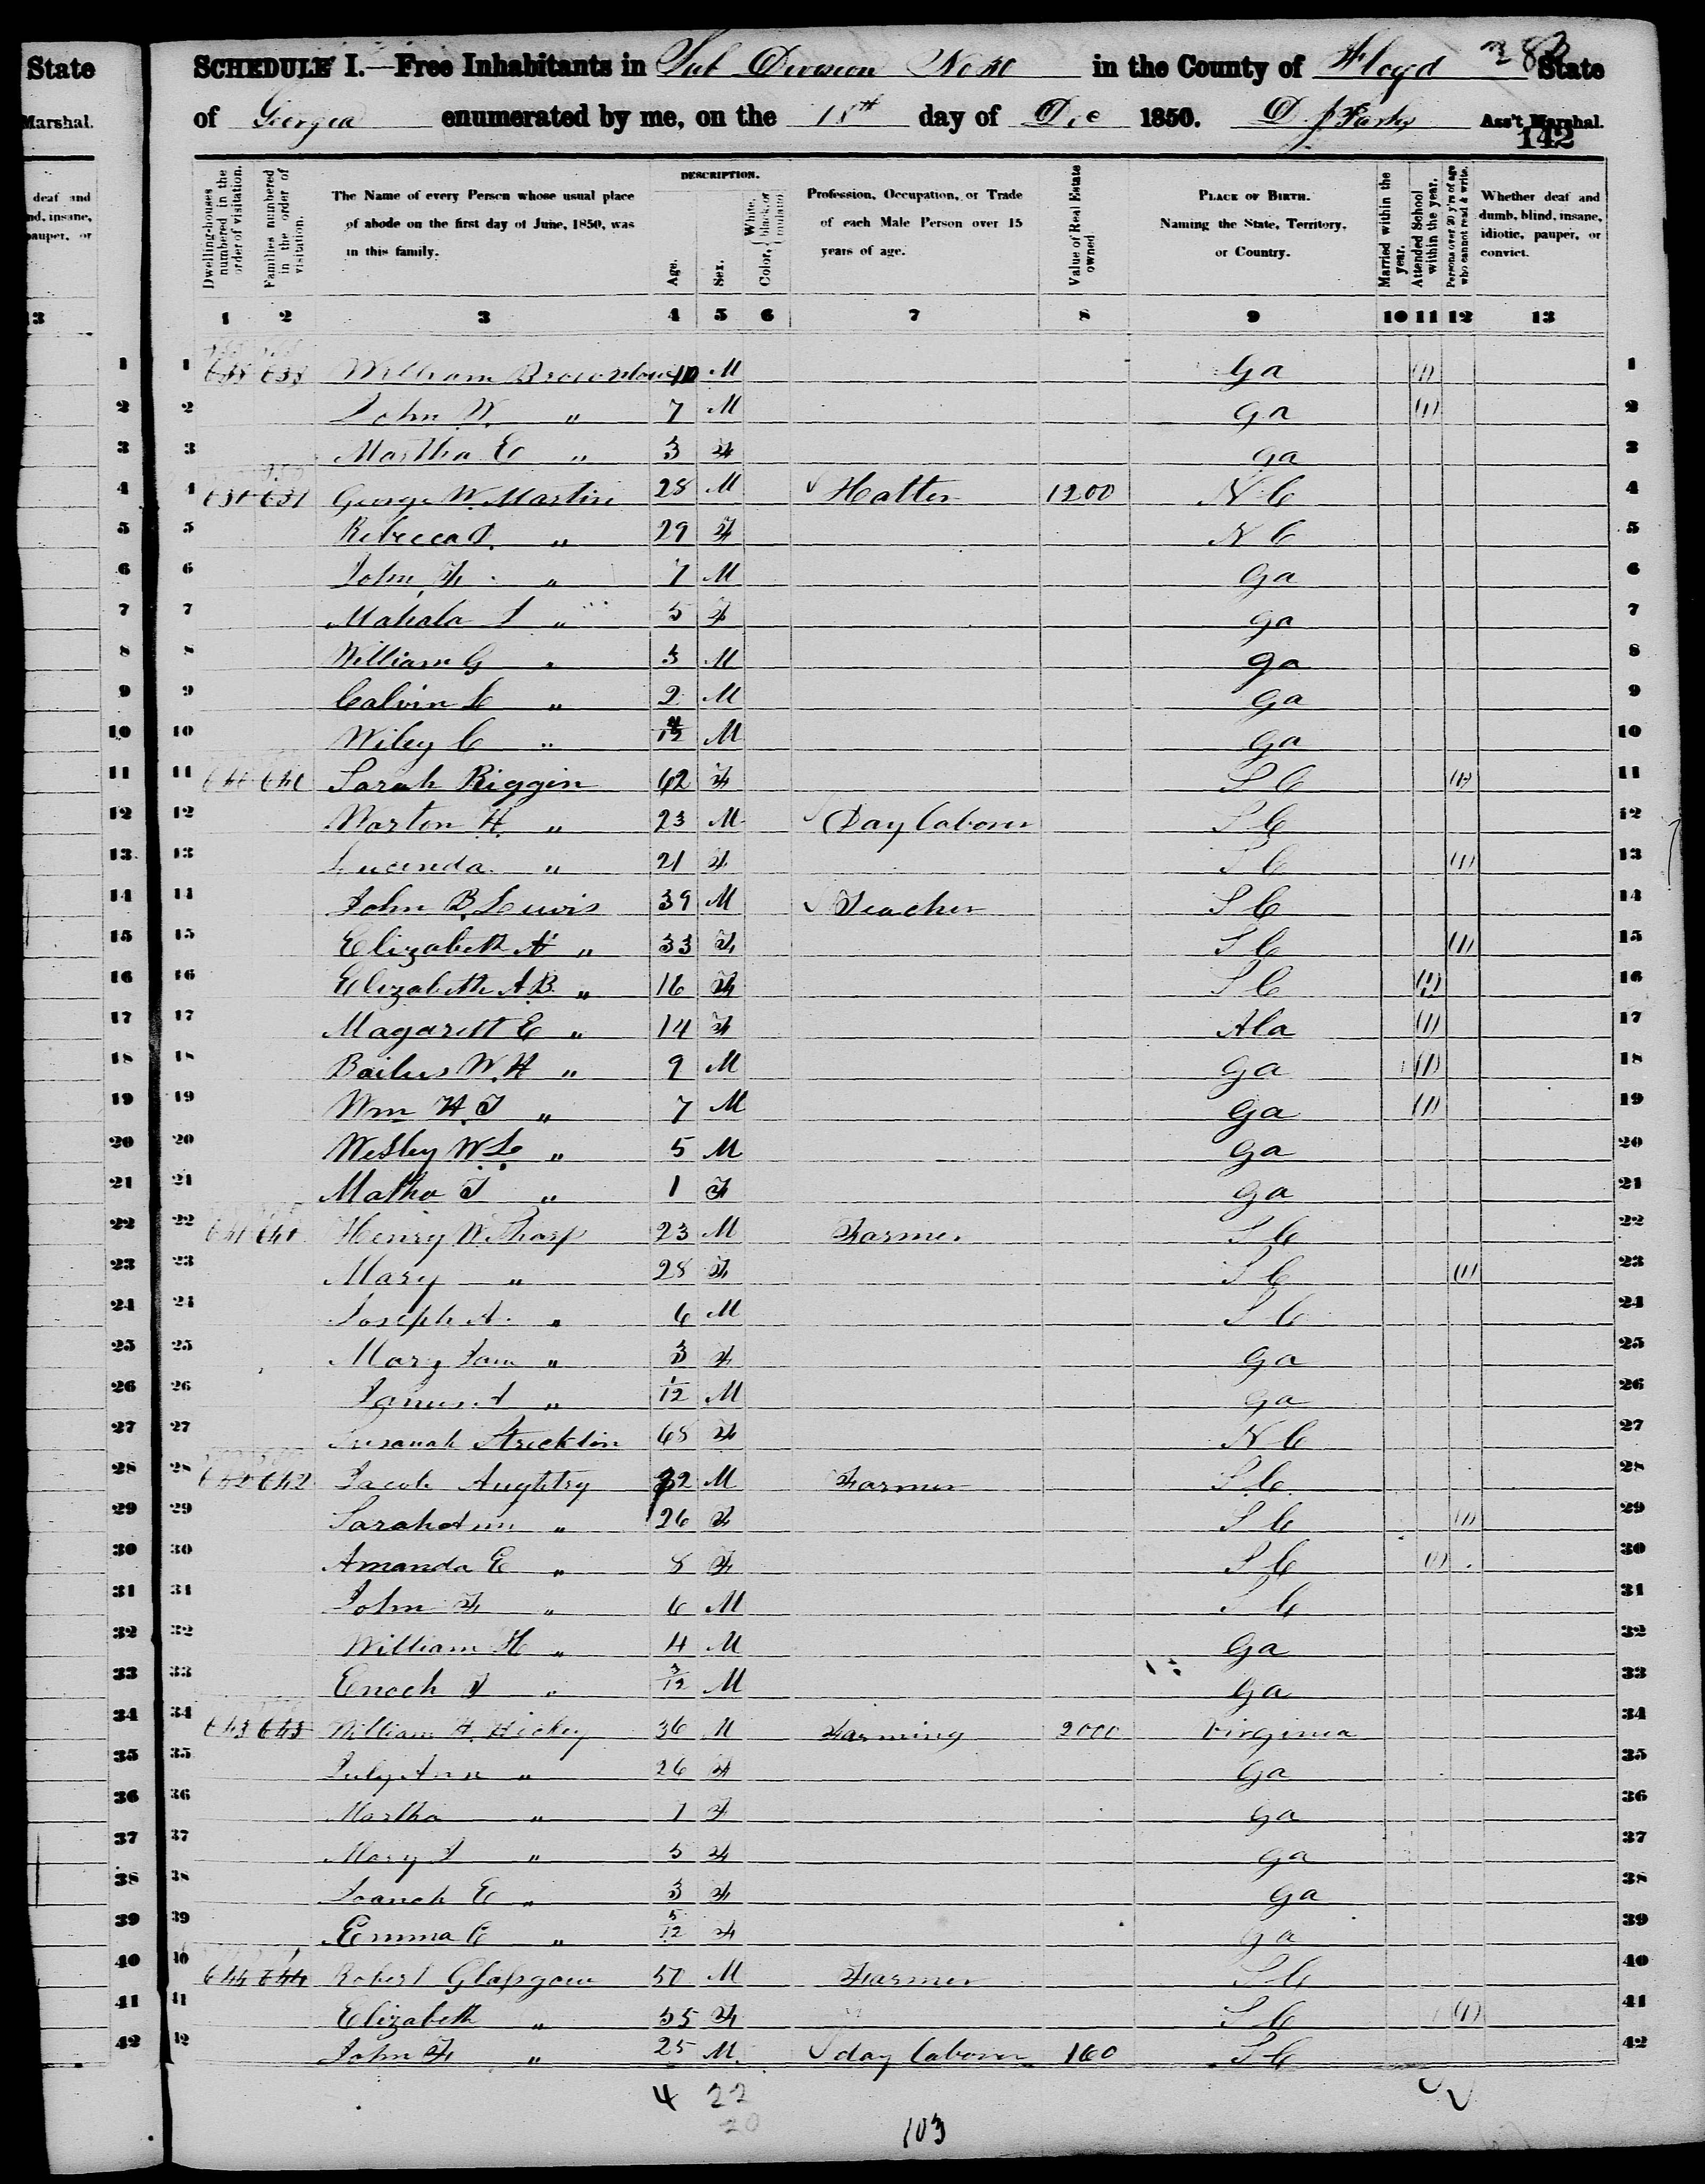 State
Marshal.
deaf and
nd, insane,
pauper, or
13
SCHEDULE I.—Free Inhabitants in Sub Division No 30 in the County of Floyd State
382
of Georgia enumerated by me, on the 18th day of Dec 1850. Ass't Marshal.
142
Dwelling-houses numbered in the order of visitation.
Families numbered in the order of visitation.
The Name of every Person whose usual place of abode on the first day of June, 1850, was in this family.
DESCRIPTION.
Age.
Sex.
Color, White, black, or mulatto.
Profession, Occupation, or Trade of each Male Person over 15 years of age.
Value of Real Estate owned
PLACE OF BIRTH. Naming the State, Territory, or Country.
Married within the year.
Attended School within the year.
Persons over 20 y'rs of age who cannot read & write.
Whether deaf and dumb, blind, insane, idiotic, pauper, or convict.
1 2 3 4 5 6 7 8 9 10 11 12 13
1 638 638 William Brownlow 10 M Ga (1) 1
2 John W. " 7 M Ga (1) 2
3 Martha E " 3 F Ga 3
4 639 639 George W. Martin 28 M Hatter 1200 N C 4
5 Rebecca " 29 F N C 5
6 John F. " 7 M Ga 6
7 Mahala " 5 F Ga 7
8 William G " 3 M Ga 8
9 Calvin L " 2 M Ga 9
10 Wiley C " 4/12 M Ga 10
11 640 640 Sarah Riggin 62 F S C (1) 11
12 Warton H. " 23 M Day laborer S C 12
13 Lucinda " 21 F S C (1) 13
14 John B. Lewis 39 M Teacher S C 14
15 Elizabeth A " 33 F S C (1) 15
16 Elizabeth A. B. " 16 F S C (1) 16
17 Magarett E " 14 F Ala (1) 17
18 Bailus W. H " 9 M Ga (1) 18
19 Wm H. T " 7 M Ga (1) 19
20 Wesley W. L " 5 M Ga 20
21 Matha T " 1 F Ga 21
22 641 641 Henry W. Sharp 23 M Farmer S C 22
23 Mary " 28 F S C (1) 23
24 Joseph A. " 6 M S C 24
25 Mary Jane " 3 F Ga 25
26 " 1/12 M Ga 26
27 Susanah Stricklin 68 F N C 27
28 642 642 Jacob Aughtry 32 M Farmer S C 28
29 Sarah Ann " 26 F S C (1) 29
30 Amanda E " 8 F S C (1) 30
31 John F " 6 M S C 31
32 William H " 4 M Ga 32
33 Enoch " 3/12 M Ga 33
34 643 643 William H. Hickey 36 M Farming 2000 Virginia 34
35 July Ann " 26 F Ga 35
36 Martha " 7 F Ga 36
37 Mary " 5 F Ga 37
38 E " 3 F Ga 38
39 Emma C " 5/12 F Ga 39
40 644 644 Robert Glasgow 50 M Farmer S C 40
41 Elizabeth " 55 F S C (1) 41
42 John F " 25 M. day laborer 160 S C 42
4 22
20
103